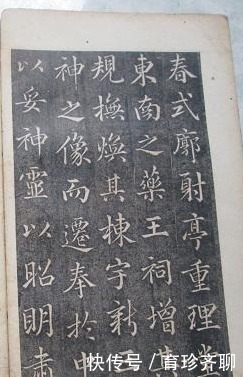 春式廓射亭重理堂
東南之藥王祠增其
規撫煥其棟宇新
神之像而遷奉於中
以妥神靈以昭明肅
快传号 / 育珍齐聊